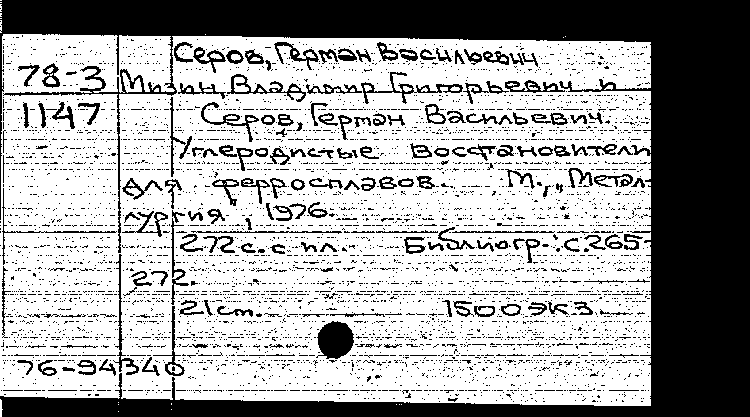 Серов, Герман Васильевич
78-3 Мизин, Владимир Григорьевич и
1147 Серов, Герман Васильевич.
Углеродистые восстановители
для ферросплавов. М., „Метал-
лургия", 1976.
272 с. с ил. Библиогр.: с. 265-
272.
21 см. 1500 экз.
76-94340